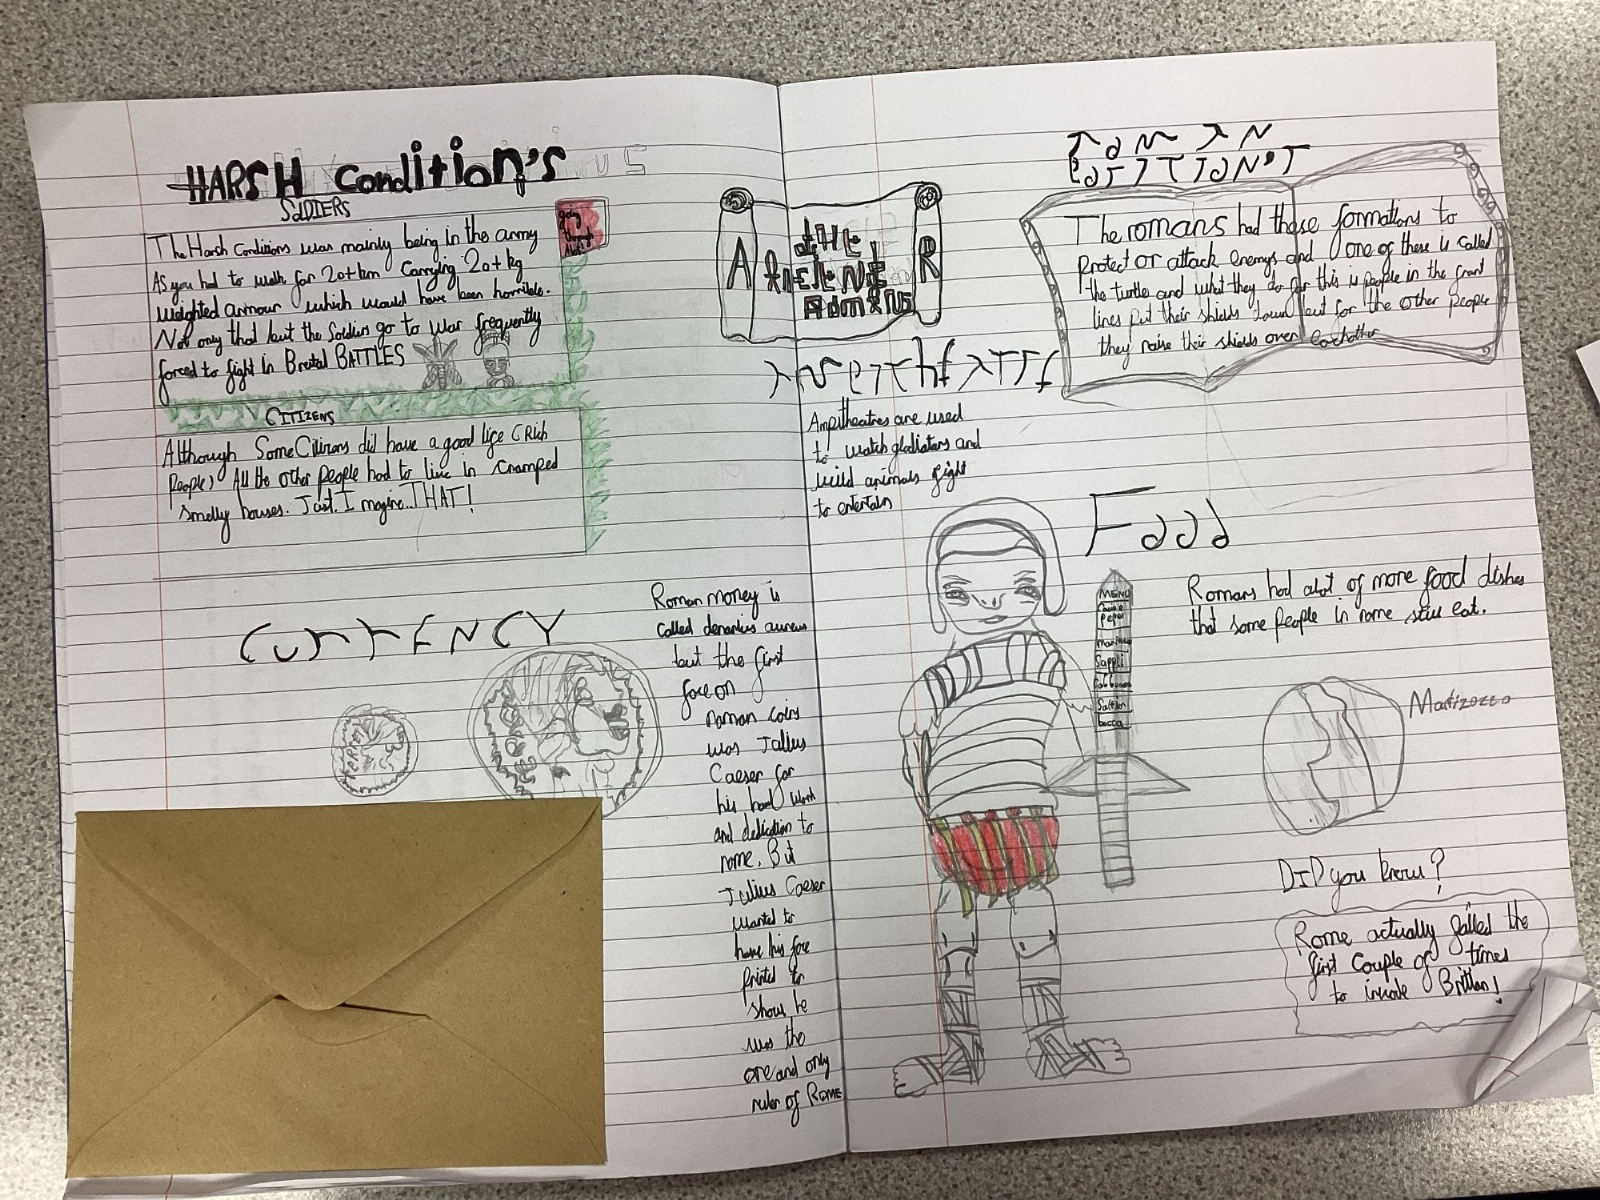 HARSH Condition's
SOLDIERS
The Harsh Conditions was mainly being in the army
As you had to walk for 20+km Carrying 20+kg
weighted armour which would have been horrible.
Not only that but the Soldiers go to war frequently
forced to fight in Brutal BATTLES
CITIZENS
Although Some Citizens did have a good life (Rich
People) All the other People had to live in Cramped
smelly houses. Just Imagine... THAT!
CurrENCY
Roman money is
called denarius aureus
but the first
face on
roman coins
was Jullius
Caeser for
his hard work
and dedication to
rome. But
Jullius Caeser
wanted to
have his face
printed to
show he
was the
one and only
ruler of ROME
A
tHE
R
Ampitheatres are used
to watch gladiators and
wild animals fight
to entertain
The romans had these formations to
protect or attack enemys and one of these is called
the turtle and what they do for this is people in the front
lines put their shields down but for the other people
they raise their shields over eachother
Food
Romans had alot of more food dishes
that some people in rome still eat.
MENU
Sappli
bocca
Maritozzo
DID you know?
Rome actually failed the
first Couple of times
to invade Brittan!